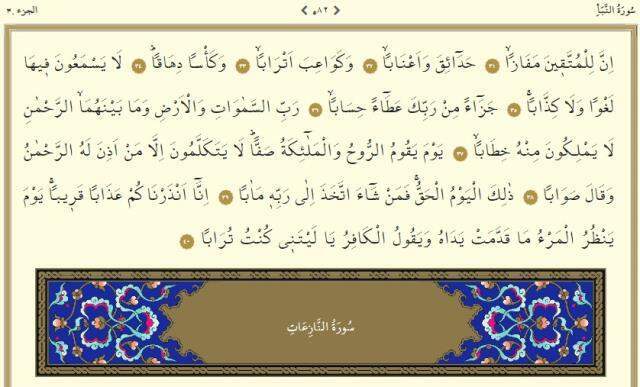 سُورَةُ النَّبَأِ ٥٨٢ الجزء ٣٠
اِنَّ لِلْمُتَّق۪ينَ مَفَازًاۙ ﴿٣١﴾ حَدَٓائِقَ وَاَعْنَابًاۙ ﴿٣٢﴾ وَكَوَاعِبَ اَتْرَابًاۙ ﴿٣٣﴾ وَكَأْسًا دِهَاقًاۜ ﴿٣٤﴾ لَا يَسْمَعُونَ ف۪يهَا
لَغْوًا وَلَا كِذَّابًاۚ ﴿٣٥﴾ جَزَٓاءً مِنْ رَبِّكَ عَطَٓاءً حِسَابًاۙ ﴿٣٦﴾ رَبِّ السَّمٰوَاتِ وَالْاَرْضِ وَمَا بَيْنَهُمَا الرَّحْمٰنِ
لَا يَمْلِكُونَ مِنْهُ خِطَابًاۚ ﴿٣٧﴾ يَوْمَ يَقُومُ الرُّوحُ وَالْمَلٰٓئِكَةُ صَفًّاۜ لَا يَتَكَلَّمُونَ اِلَّا مَنْ اَذِنَ لَهُ الرَّحْمٰنُ
وَقَالَ صَوَابًا ﴿٣٨﴾ ذٰلِكَ الْيَوْمُ الْحَقُّۚ فَمَنْ شَٓاءَ اتَّخَذَ اِلٰى رَبِّه۪ مَاٰبًا ﴿٣٩﴾ اِنَّٓا اَنْذَرْنَاكُمْ عَذَابًا قَر۪يبًاۚ يَوْمَ
يَنْظُرُ الْمَرْءُ مَا قَدَّمَتْ يَدَاهُ وَيَقُولُ الْكَافِرُ يَا لَيْتَن۪ي كُنْتُ تُرَابًا ﴿٤٠﴾
سُورَةُ النَّازِعَاتِ